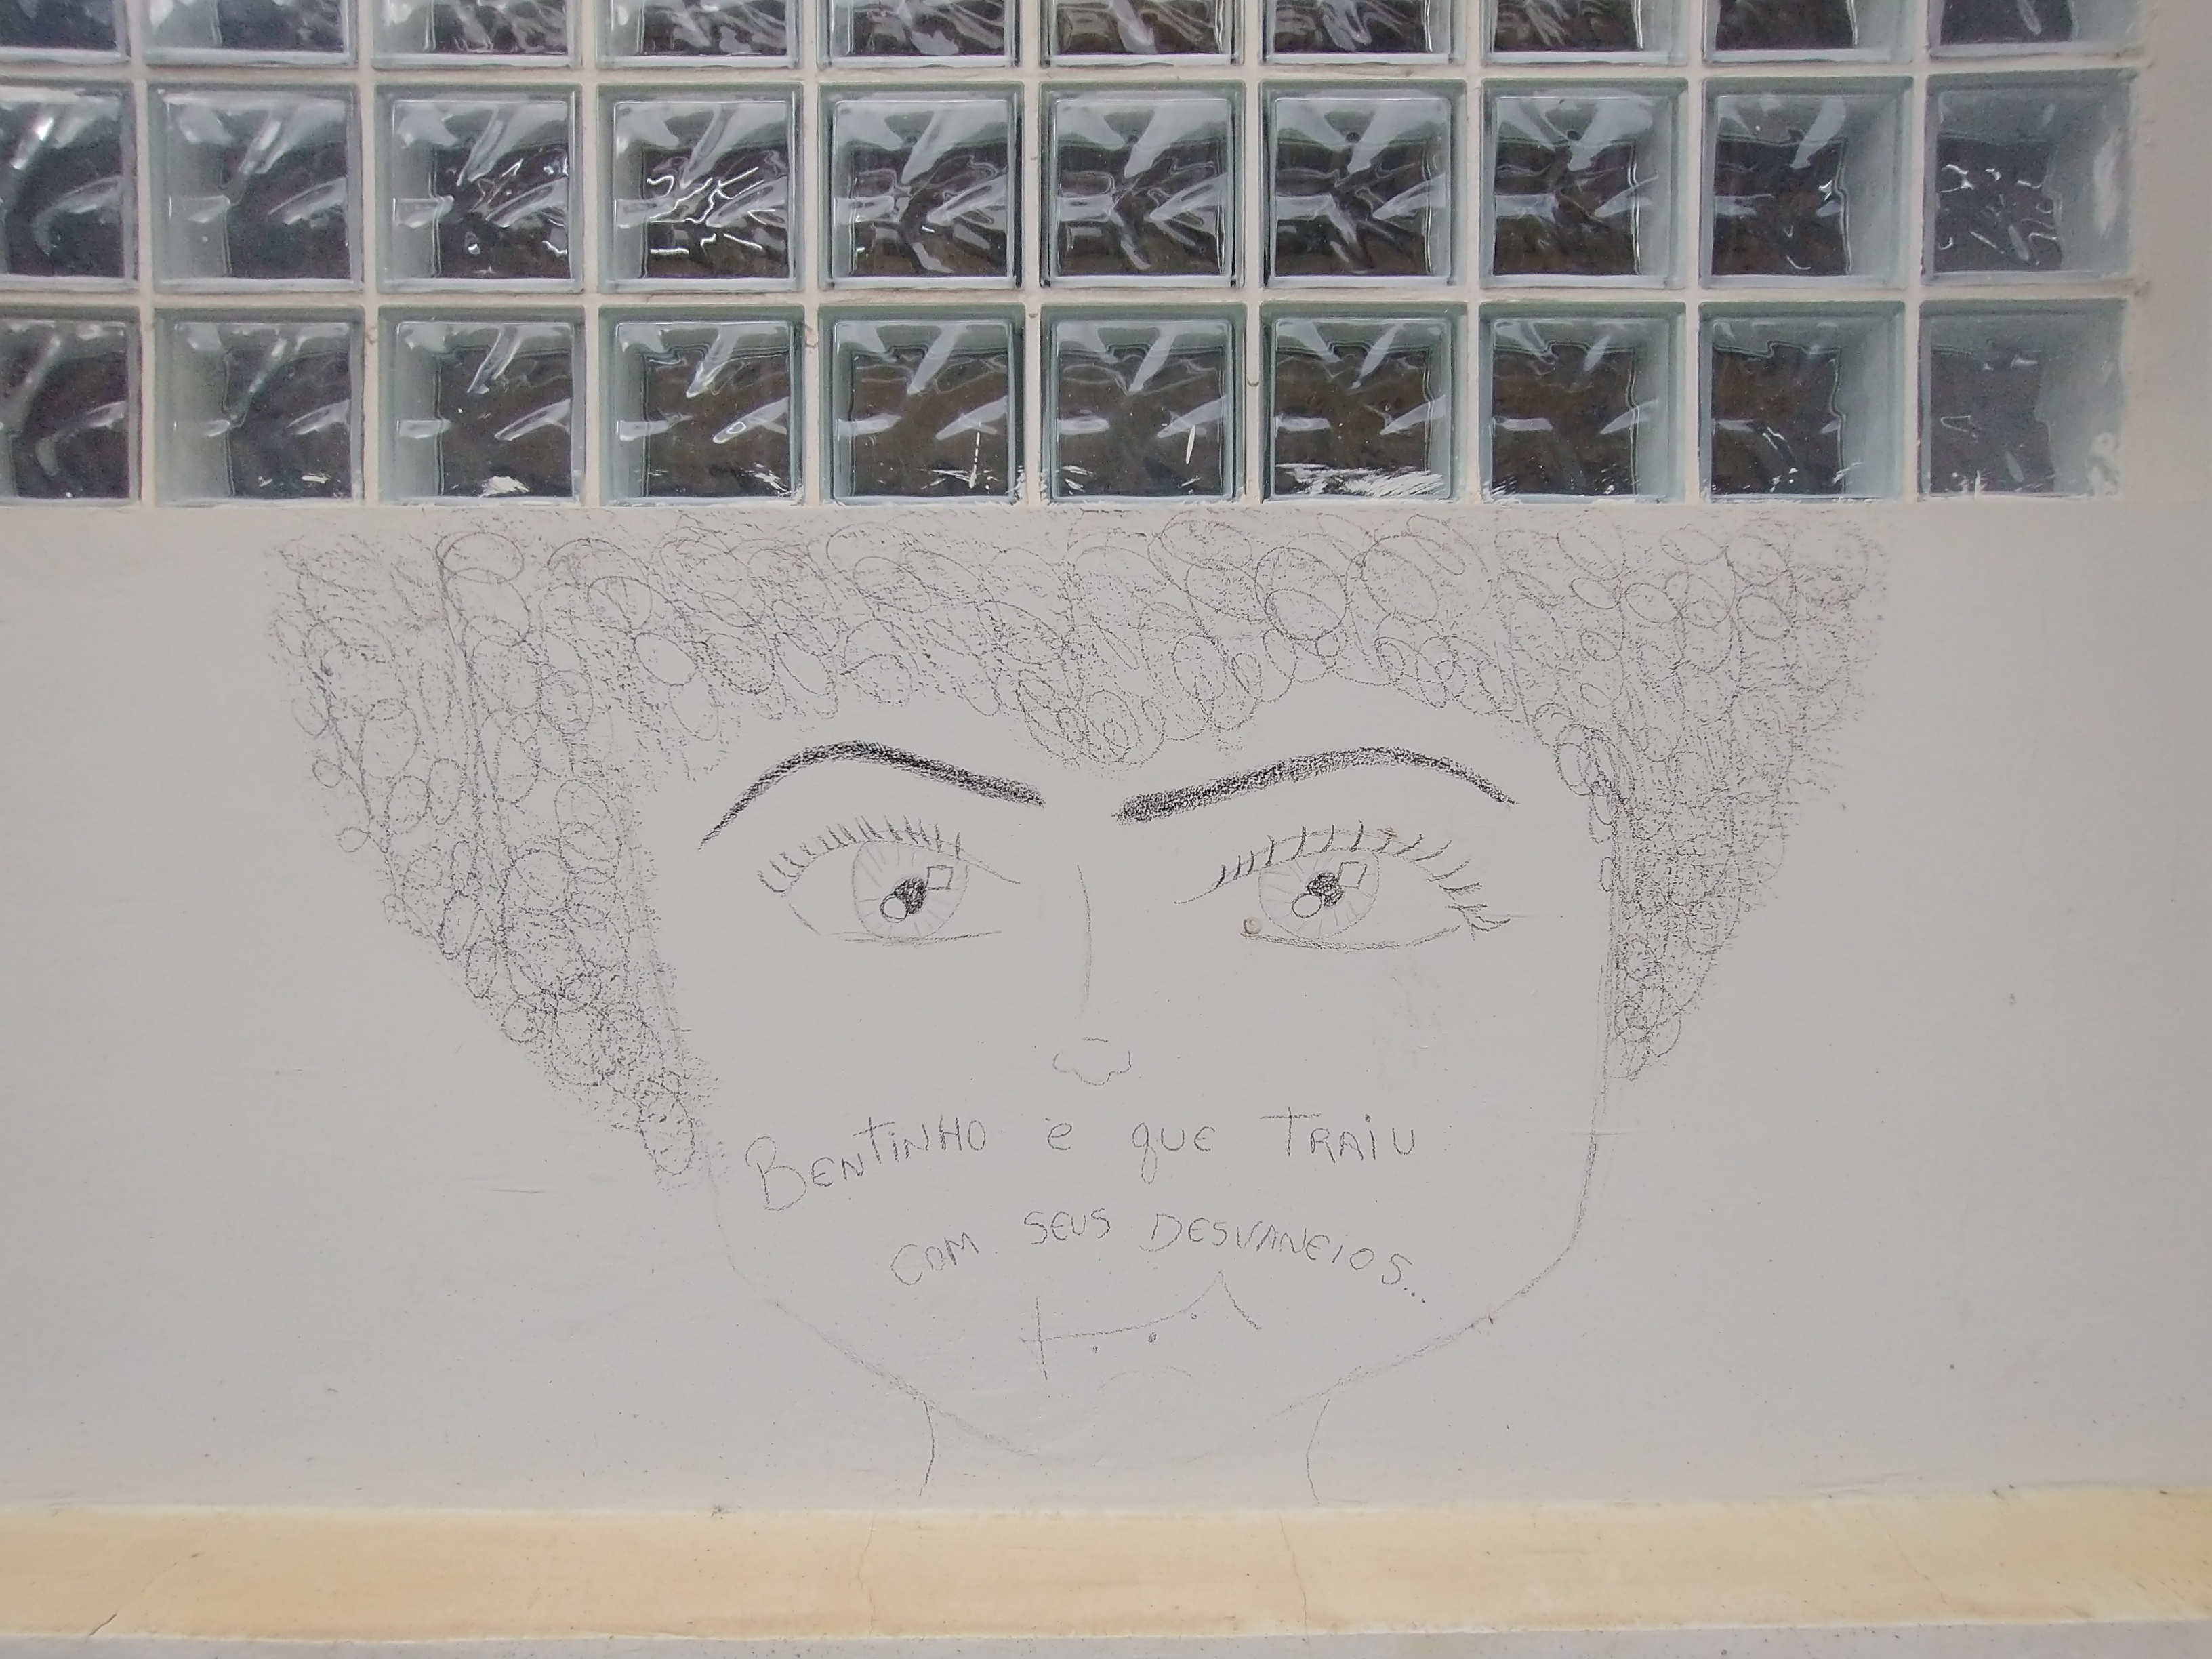 BENTINHO é que TRAIU
COM SEUS DESVANEIOS...